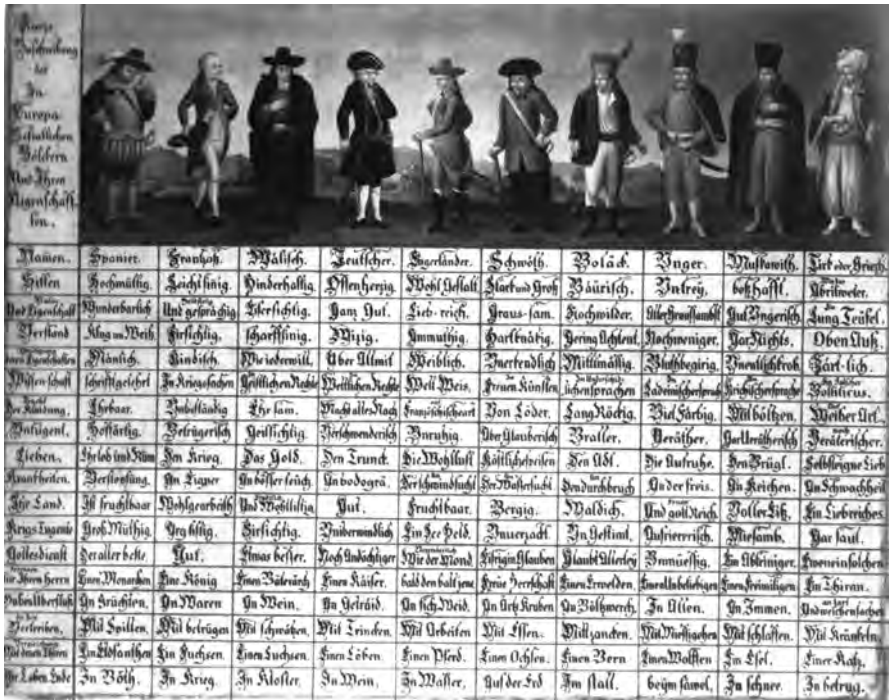 Kurze
Beschreibung
der
In
Europa
Befintlichen
Völckern
Und Ihren
Aigenschaff
ten.
Namen. Spanier. Frantzoß. Wälisch. Teutscher. Engerländer. Schwöth. Boläck. Unger. Muskawith. Tirk oder Griech.
Sitten Hochmüttig. Leichtsinig. Hinderhaltig. Offenherzig. Wohl Gestalt. Starck und Groß Bäurisch. Untrey. boßhafft. Abrilweter.
Und Eigenschaft Wunderbarlich Und gesprächig Eifersichtig. Ganz Gut. Lieb-reich. Graus-sam. Hochwilder. Aller Grausambst. Gut Ungerisch. Lung Teüfel.
Verstand Klug un Weiß. Firsichtig. scharffsinig. Wizig. Anmuthig. Hartknätig. Gering Achtent. Nochweniger. Gar Nichts. Oben Auß.
Eigenschaften Mänlich. Kindisch. Wie iederwill. Über Allmit Weiblich. Unerkendlich Mittlmässig. Bluthbegirig. Unentlichkrob. Zärt-lich.
Wissenschaft schrifftgelehrt In Kriegssachen Geistlichen Rechte Weltlichen Rechte Welt Weis. Freuen Künsten sprachen Ladeinischersprach Krichischersprache Bolliticus.
Der Kleidung. Ehrbaar. Unbeständig Ehrsam. Macht alles Nach Französischeart Von Löder. Lang Röckig. Viel Färbig. Mit böltzen. Weiber Art.
Untugent. Hoffärtig. Betrügerisch Geilsichtig. Verschwenderisch Unruhig. Aber Glauberisch Braller. Veräther. Gar Verätherisch Verätterischer.
Lieben. Ehrlob und Rüm Den Krieg. Das Gold. Den Trunck. Die Wohllust Köstlichespeisen Den Adl. Die Aufruhe. Den Brügl. Selbsteigne Lieb
Krankheiten. Verstopfung. An Eigner An bösser seüch. An bodogrä. Der schwindsucht Der Wassersucht Den durchbruch An der freis. An Keichen. An Schwachheit
Ihr Land. Ist fruchtbaar Wohlgearbeith Und Wohllistig Gut. Fruchtbaar. Bergig. Waldich. Und gollt Reich. Voller Eiß. Ein Liebreiches
Krigs Tugente Groß Müthig. Arg listig. Firsichtig. Uniberwindlich Ein See Held. Unverzacht. Un Gestimt. Aufrierrisch. Miesamb. Gar faul.
Gottesdienst Der aller beste. Gut. Etwas besser. Noch Andächtiger Wie der Mond. Eifrig in Glauben Glaubt Allerley Unmüessig. Ein Abtriniger. Eweneinsolchen
Ihren Herrn Einen Monarchen. Eine König Einen Bäterärch Einen Käiser. bald den balt jene Freüe Herrschaft Einen Erwelden. Einen Unbeliebigen Einen Freimiligen Ein Thiran.
Haben Überfluß An Früchten. An Waren An Wein. An Geträid. An fich Weid. An Ärtz Kruben An Böltzwerch. In Allen. In Immen. Und weichen sachen
Vertreiben. Mit Spillen. Mit betrügen Mit schwätzen. Mit Trincken. Mit Arbeiten Mit Essen. Mit zancken. Mit Miessigehen Mit schlaffen. Mit Kränkeln.
Mit denen Thieren Ein Elofanthen Ein Fuchsen. Einen Luchsen. Einen Löben. Einen Pferd. Einen Ochsen. Einen Bern Einen Wolffen Ein Esel. Einer Katz.
Ihr Leben Ende In Böth. In Krieg. In Kloster. In Wein. In Wasser. Auf der Erd Im stall. beym säwel. In schnee. In betrug.